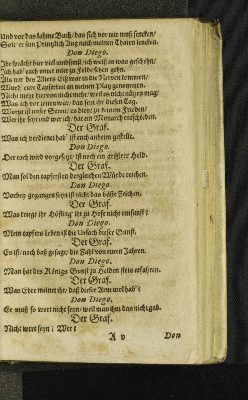 Und vor das schöne Buch/ das sich vor mir muß sencken/
Solt er sein Printzlich Aug nach meinen Thaten lencken.
Don Diego.
Ihr sprächt hier viel umbsonst/ ich weiß es was geschehn/
Ich hab' euch unter mir zu Felde sehen gehn.
Als mir des Alters Eiß war in die Nerven kommen/
Wurd' eure Tapferkeit an meinen Platz genommen.
Nicht mehr hiervon nicht mehr/ weil es nicht nützen mag/
Was ich vor zeiten war/ das seyt ihr diesen Tag.
Wer ihr seyn und wer ich/ hat ein Monarch entschieden.
Der Graf.
Was ich verdienet hab' ist euch anheim gestellt.
Don Diego.
Der euch wird vorgesetzt/ ist noch ein grösserer Held.
Der Graf.
Man sol den tapfersten dergleichen Würde reichen.
Don Diego.
Vorbey gegangen seyn ist nicht das beste Zeichen.
Der Graf.
Was kriegt ihr Höfling' ihr zu Hofe nicht umsonst?
Don Diego.
Mein tapfers Leben ist die Ursach dieser Gunst.
Der Graf.
Es ist/ noch baß gesagt/ die Zahl von euren Jahren.
Don Diego.
Man hat des Königs Gunst zu Helden stets erfahren.
Der Graf.
Was Ehre meinet ihr/ daß dieser Arm wol hab'?
Don Diego.
Er muß so wert nicht seyn/ weil man ihm das nicht gab.
Der Graf.
Nicht wert seyn? Wer?
A v
Don